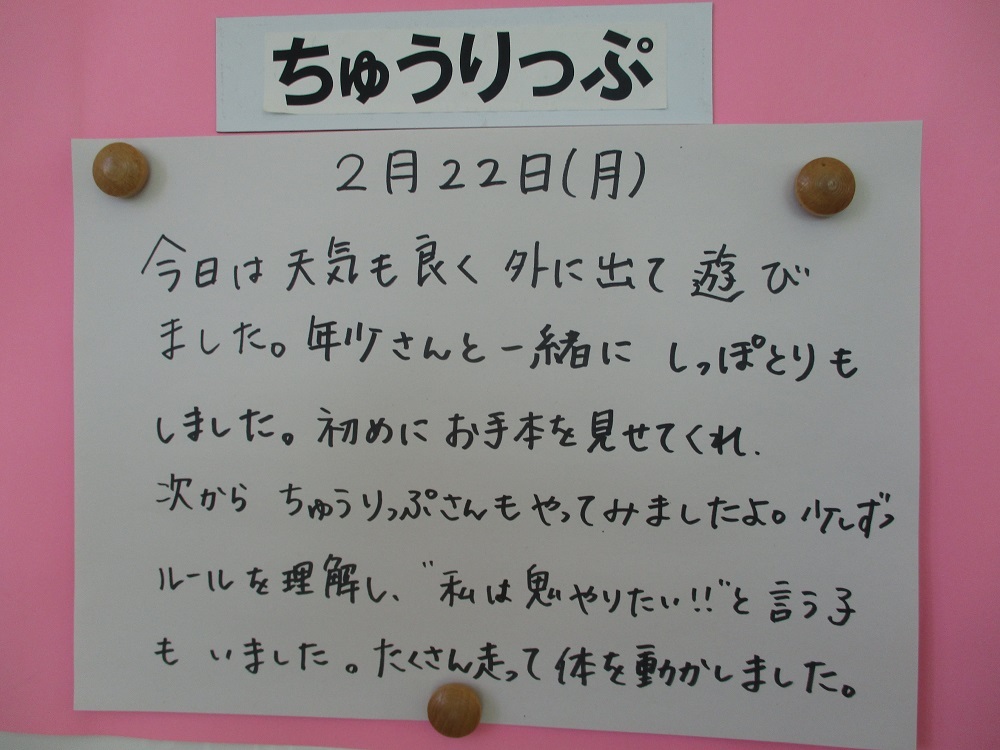 ちゅうりっぷ
2月22日(月)
今日は天気も良く外に出て遊び
ました。年少さんと一緒にしっぽとりも
しました。初めにお手本を見せてくれ、
次からちゅうりっぷさんもやってみましたよ。少しずつ
ルールを理解し、"私は鬼やりたい!!"と言う子
もいました。たくさん走って体を動かしました。